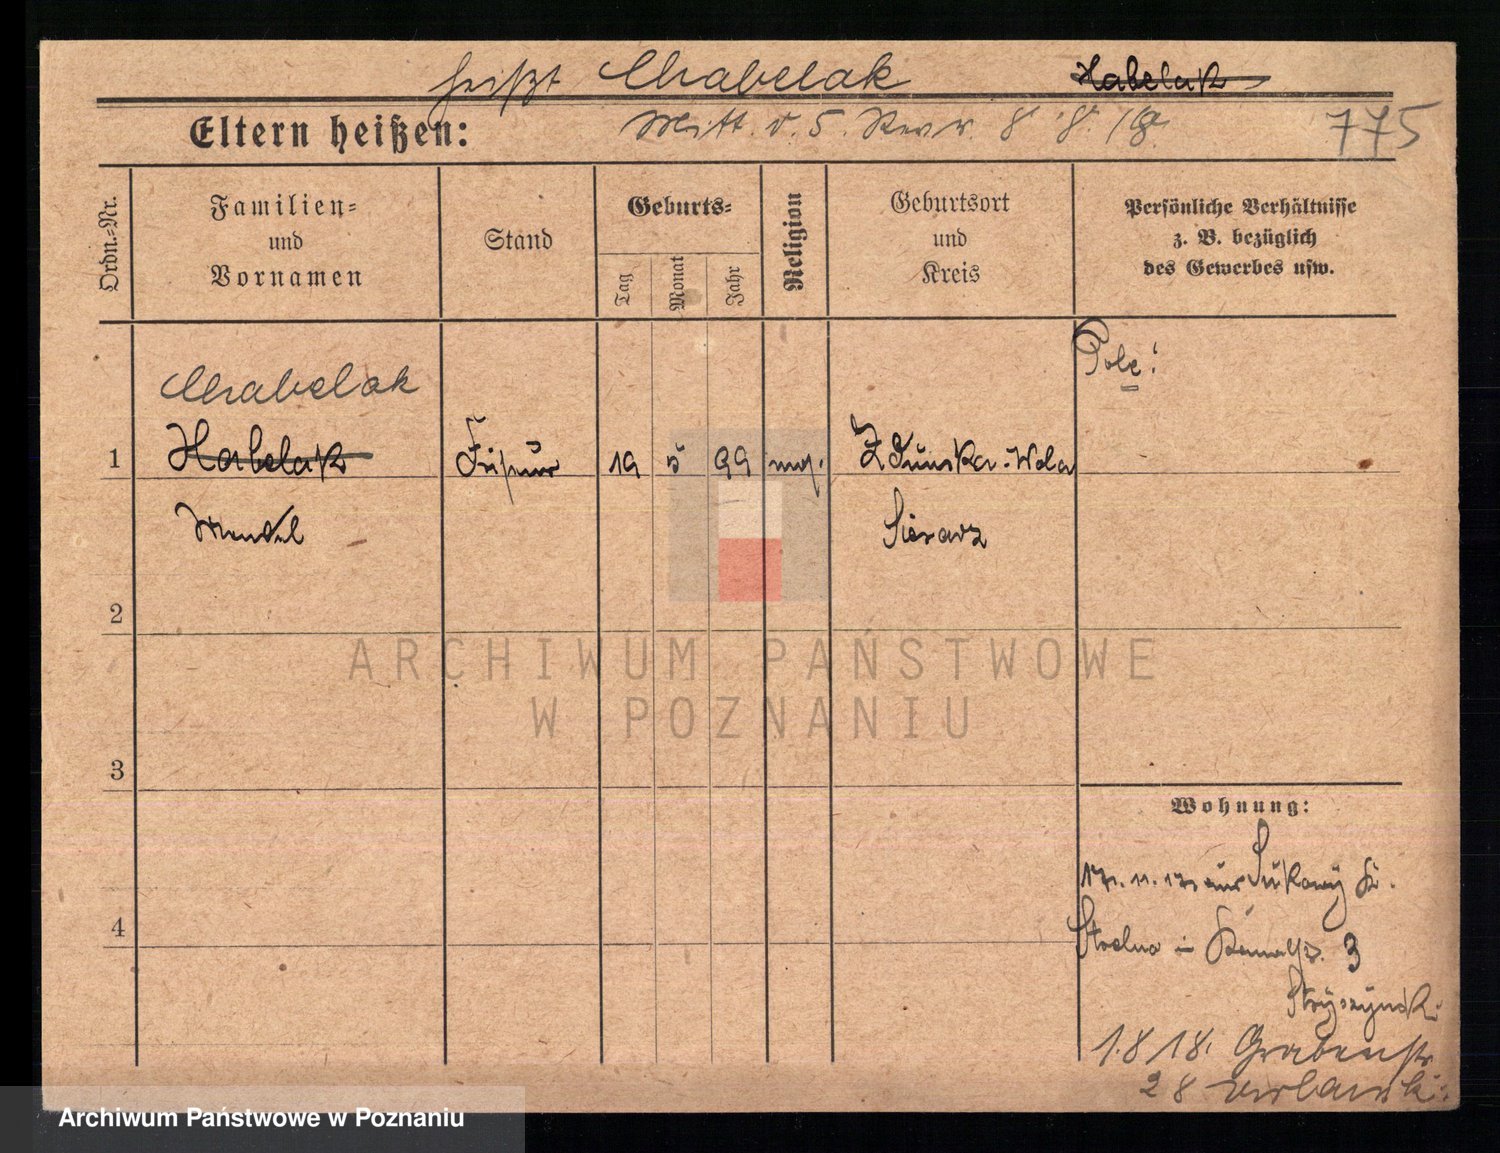 heißt Chabelak Habelak
Eltern heißen: Mitt. v. 5. Revr. 8. 8. 18. 775
Ordn.-Nr.
Familien-
und
Vornamen
Stand
Geburts-
Tag
Monat
Jahr
Religion
Geburtsort
und
Kreis
Persönliche Verhältnisse
z. B. bezüglich
des Gewerbes usw.
Pole!
Chabelak
1 Habelak Friseur 19 5 99 mos. Zdunska-Wola
Mendel Sieradz
2
ARCHIWUM PAŃSTWOWE
W POZNANIU
3
Wohnung:
17. 11. 17. aus
4
Strelno - 3
Stryczynski
1.8 18. Grabenstr.
28
Archiwum Państwowe w Poznaniu